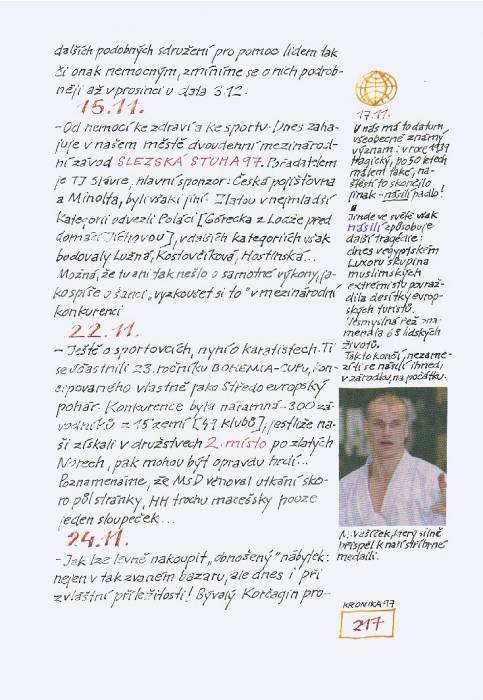 dalších podobných sdružení pro pomoc lidem tak
či onak nemocným, zmíníme se o nich podrob-
něji až v prosinci u data 3.12.
15.11.
– Od nemocí ke zdraví a ke sportu. Dnes zaha-
juje v našem městě dvoudenní mezinárod-
ní závod SLEZSKÁ STUHA 97. Pořadatelem
je TJ Slavie, hlavní sponzor: Česká pojišťovna
a Minolta, byli však i jiní. Zlatou v nejmladší
kategorii odvezli Poláci [Górecka z Lodže před
domácí Jichovou], v dalších kategoriích však
bodovaly Lužná, Kostovčíková, Hostinská...
Možná, že tu ani tak nešlo o samotné výkony, ja-
ko spíše o šanci „vyzkoušet si to" v mezinárodní
konkurenci
22.11.
– Ještě o sportovcích, nyní o karatistech. Ti
se účastnili 23. ročníku BOHEMIA-CUPu, kon-
cipovaného vlastně jako Středoevropský
pohár. Konkurence byla náramná – 300 zá-
vodníků z 15 zemí [49 klubů], jestliže na-
ši získali v družstvech 2. místo po zlatých
Norech, pak mohou být opravdu hrdi...
Poznamenáme, že MsD věnoval utkání sko-
ro půl stránky, HH trochu macešsky pouze
jeden sloupeček...
24.11.
– Jak lze levně nakoupit „obnošený" nábytek:
nejen v tak zvaném bazaru, ale dnes i při
zvláštní příležitosti! Bývalý Korčagin pro-
17.11.
U nás má to datum
všeobecně známý
význam: v roce 1939
tragický, po 50 letech
málem také, na-
štěstí to skončilo
jinak – násilí padlo!
Jinde ve světě však
násilí způsobuje
další tragédie:
dnes v egyptském
Luxoru skupina
muslimských
extrémistů povraž-
dila desítky evrop-
ských turistů.
Nesmyslná řež zna-
menala 68 lidských
životů.
Tak to končí, nezame-
zí-li se násilí ihned
v zárodku, na počátku.
N. Vašíček, který silně
přispěl k naší stříbrné
medaili.
KRONIKA 97
217